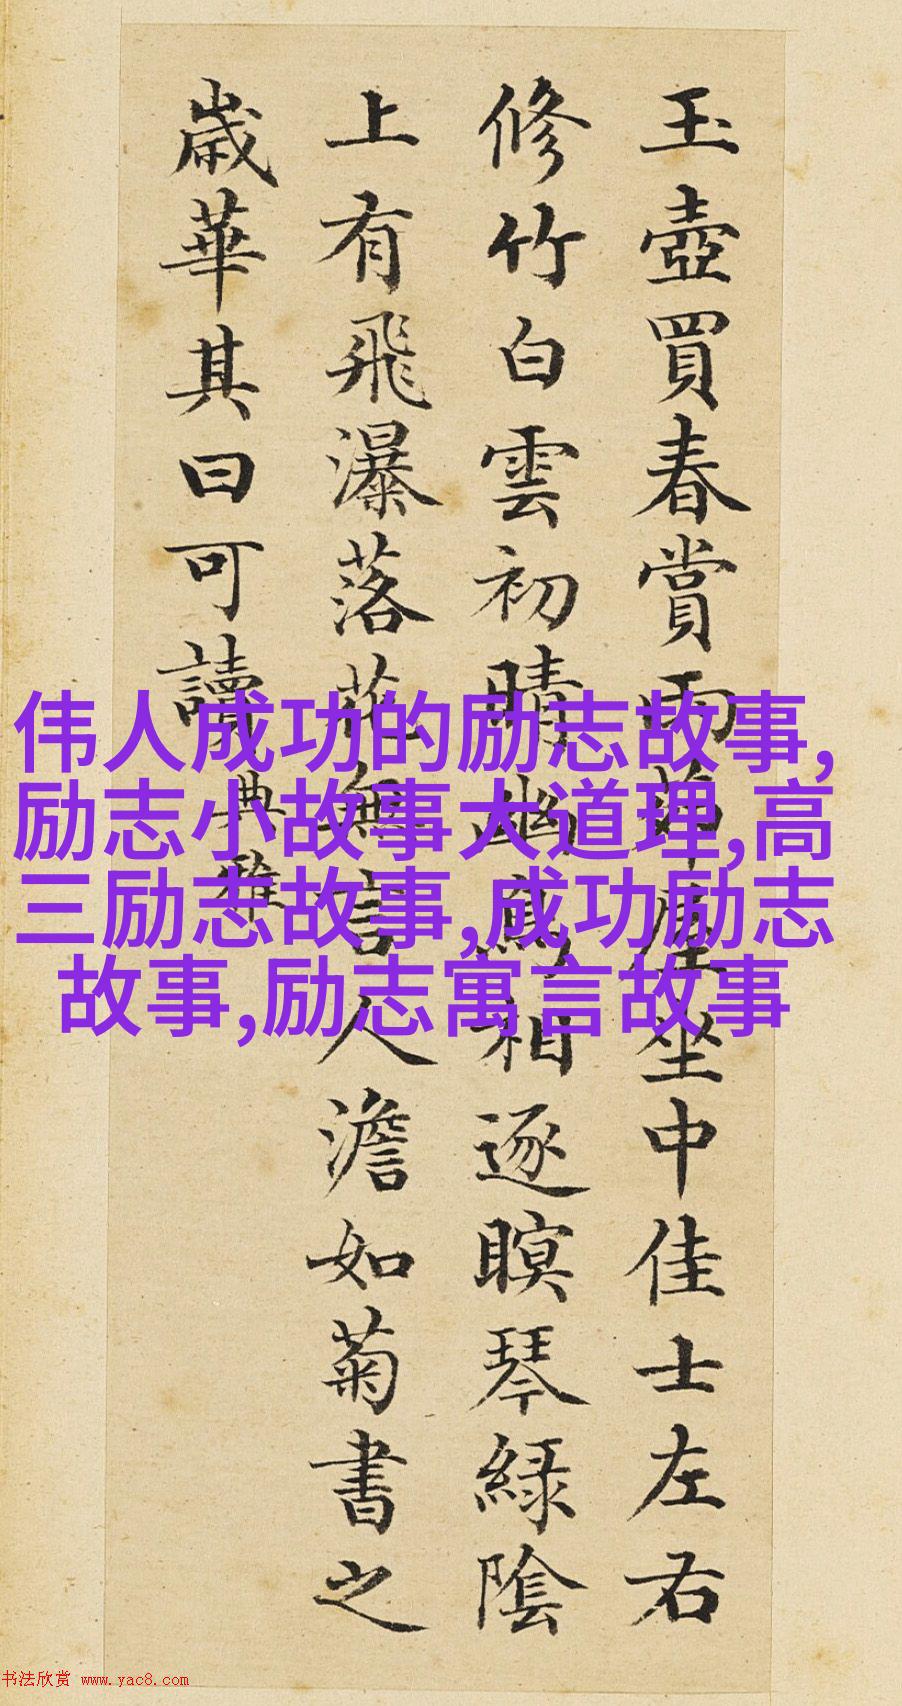 玉壺買春賞雨茆屋坐中佳士左右
修竹白雲初晴幽鳥相逐瞑琴綠陰
上有飛瀑落花無言人澹如菊書之
歲華其曰可讀 典雅
伟人成功的励志故事,
励志小故事大道理,高
三励志故事,成功励志
故事,励志寓言故事
书法欣赏 www.yac8.com